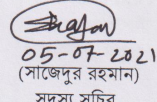 05-07-2021
(সাজেদুর রহমান)
সদস্য সচিব